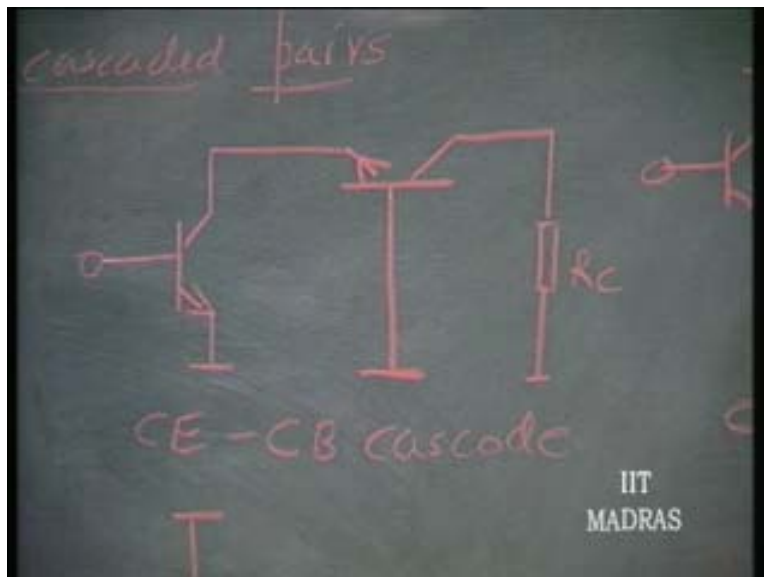 cascaded pairs
Rc
CE-CB cascode
IIT
MADRAS